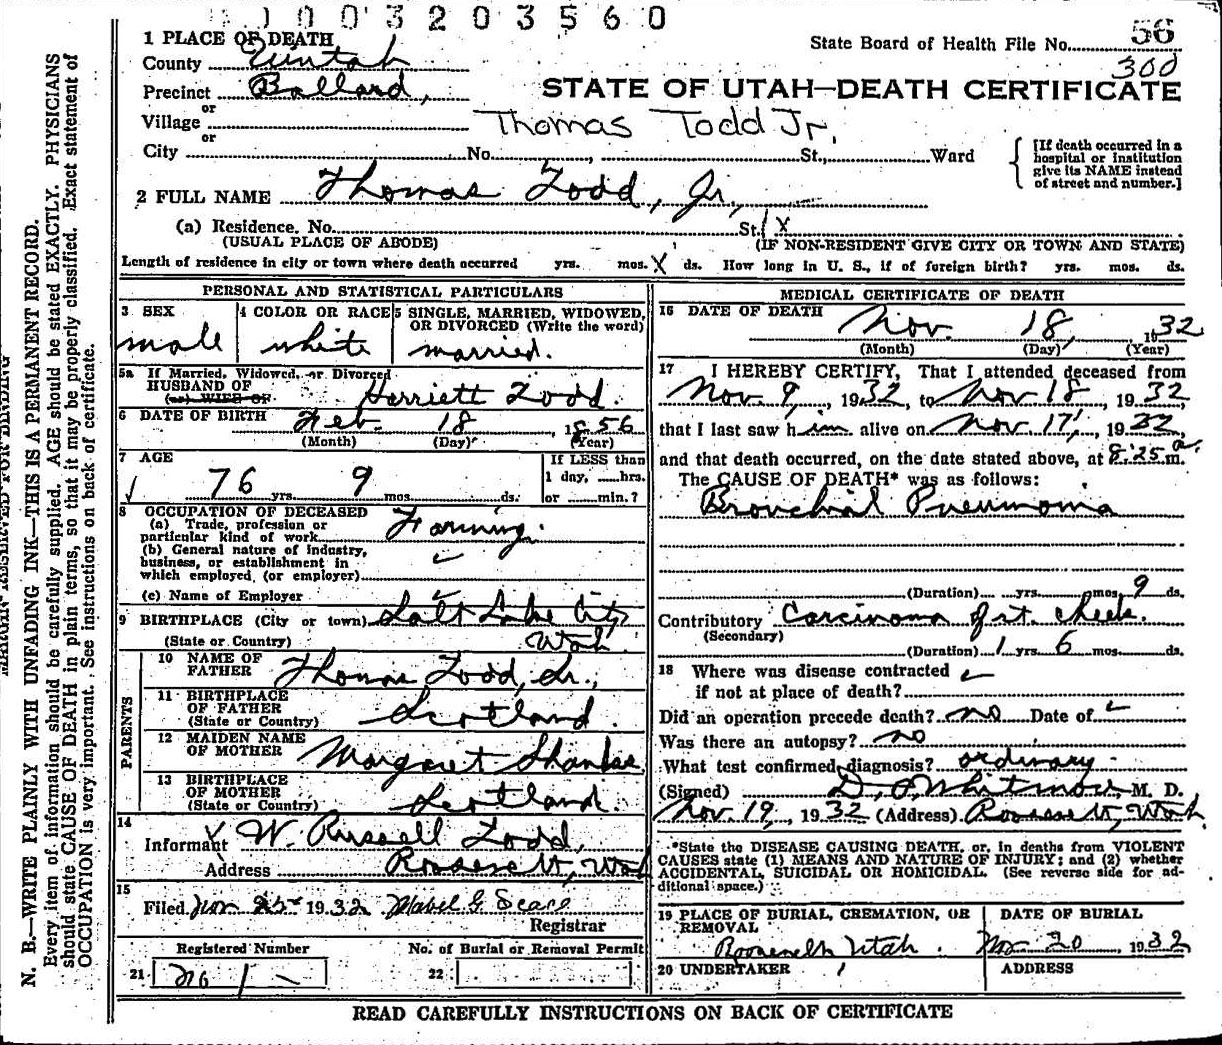 1 0 0 3 2 0 3 5 6 0
56
State Board of Health File No.
300
1 PLACE OF DEATH
County Uintah
Precinct Ballard,
or
Village
or
City No. , St., Ward
STATE OF UTAH—DEATH CERTIFICATE
Thomas Todd Jr.
[If death occurred in a
hospital or institution
give its NAME instead
of street and number.]
2 FULL NAME Thomas Todd, Jr.,
(a) Residence. No. St. X
(USUAL PLACE OF ABODE) (IF NON-RESIDENT GIVE CITY OR TOWN AND STATE)
Length of residence in city or town where death occurred yrs. mos. X ds. How long in U. S., if of foreign birth? yrs. mos. ds.
PERSONAL AND STATISTICAL PARTICULARS
3 SEX
male
4 COLOR OR RACE
white
5 SINGLE, MARRIED, WIDOWED,
OR DIVORCED (Write the word)
married.
5a If Married, Widowed, or Divorced
HUSBAND OF
(or) WIFE OF Harriett Todd.
6 DATE OF BIRTH Feb. 18, 1856
(Month) (Day) (Year)
7 AGE
76 yrs. 9 mos. ds.
If LESS than
1 day, hrs.
or min.?
8 OCCUPATION OF DECEASED
(a) Trade, profession or
particular kind of work Farming.
(b) General nature of industry,
business, or establishment in
which employed, (or employer)
(c) Name of Employer
9 BIRTHPLACE (City or town) Salt Lake City
(State or Country) Utah.
PARENTS
10 NAME OF
FATHER Thomas Todd, Sr.,
11 BIRTHPLACE
OF FATHER
(State or Country) Scotland.
12 MAIDEN NAME
OF MOTHER Margaret
13 BIRTHPLACE
OF MOTHER
(State or Country) Scotland.
14
Informant W. Russell Todd,
Address Roosevelt, Utah
15
Filed Nov 25 1932 Mabel G.
Registrar
Registered Number No. of Burial or Removal Permit
21 no 1 22
MEDICAL CERTIFICATE OF DEATH
16 DATE OF DEATH Nov. 18, 1932
(Month) (Day) (Year)
17 I HEREBY CERTIFY, That I attended deceased from
Nov. 9, 1932, to Nov 18, 1932
that I last saw him alive on Nov 17, 1932,
and that death occurred, on the date stated above, at 8:25 a. m.
The CAUSE OF DEATH* was as follows:
Bronchial Pneumonia
(Duration) yrs. mos. 9 ds.
Contributory Carcinoma of rt. cheek.
(Secondary)
(Duration) 1 yrs. 6 mos. ds.
18 Where was disease contracted
if not at place of death?
Did an operation precede death? no Date of
Was there an autopsy? no
What test confirmed diagnosis? ordinary
(Signed) D. P. Whitmore, M. D.
Nov. 19, 1932 (Address) Roosevelt, Utah.
*State the DISEASE CAUSING DEATH, or, in deaths from VIOLENT
CAUSES state (1) MEANS AND NATURE OF INJURY; and (2) whether
ACCIDENTAL, SUICIDAL OR HOMICIDAL. (See reverse side for ad-
ditional space.)
19 PLACE OF BURIAL, CREMATION, OR
REMOVAL
Roosevelt Utah.
DATE OF BURIAL
Nov 20, 1932
20 UNDERTAKER ADDRESS
READ CAREFULLY INSTRUCTIONS ON BACK OF CERTIFICATE
N. B.—WRITE PLAINLY WITH UNFADING INK—THIS IS A PERMANENT RECORD.
Every item of information should be carefully supplied. AGE should be stated EXACTLY. PHYSICIANS
should state CAUSE OF DEATH in plain terms, so that it may be properly classified. Exact statement of
OCCUPATION is very important. See instructions on back of certificate.